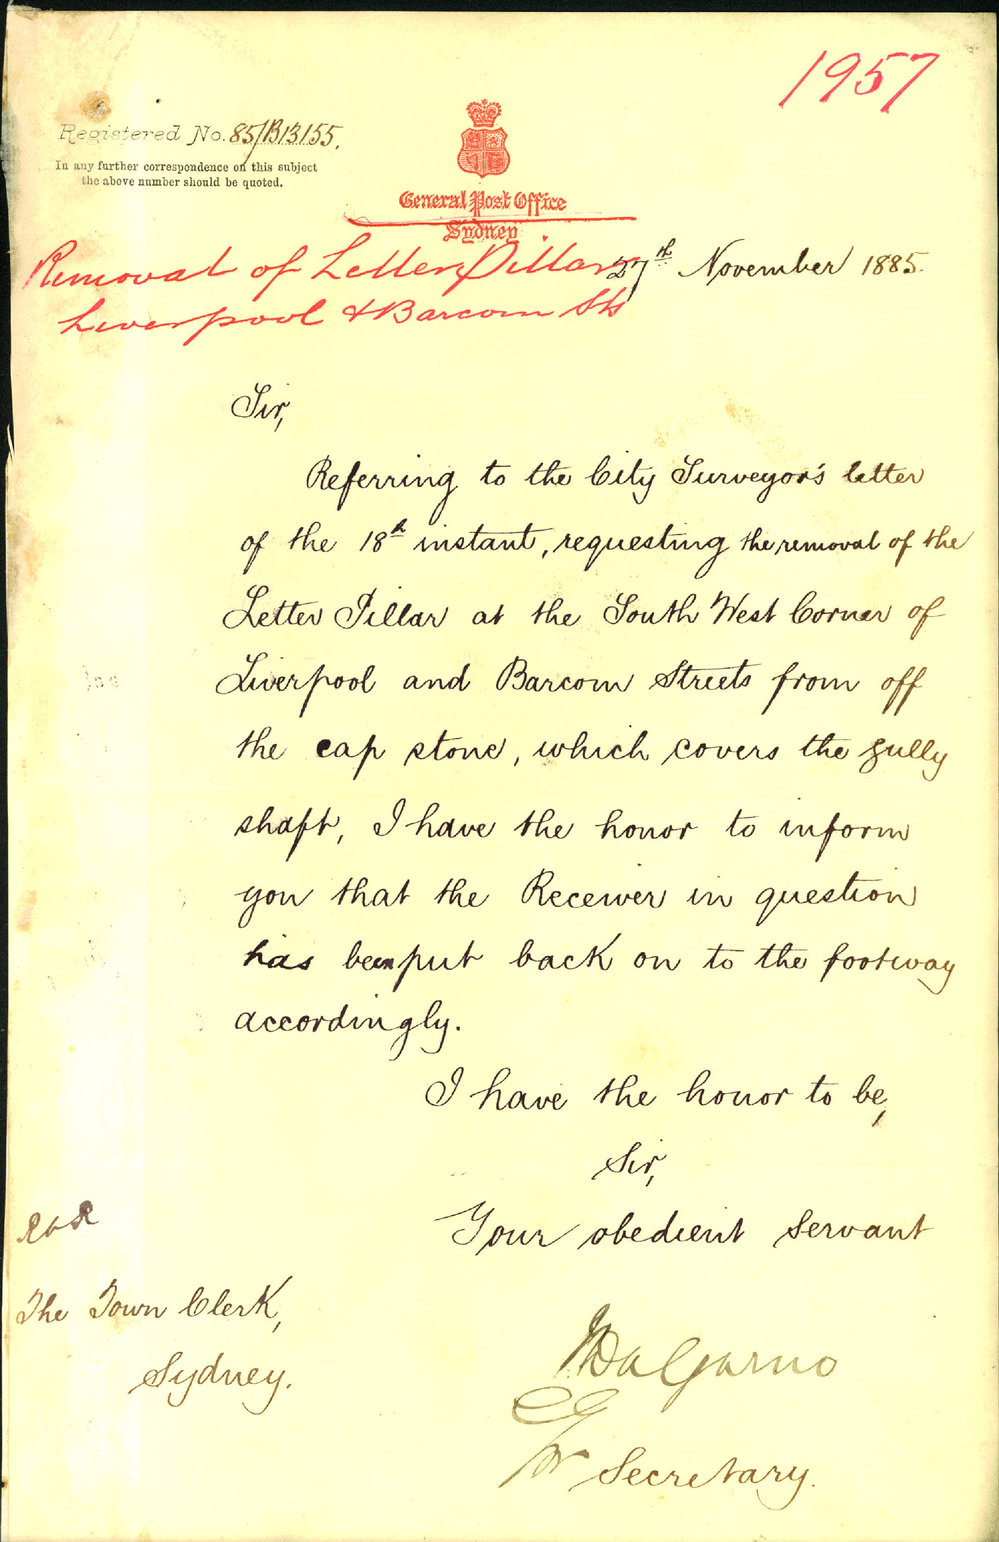 1957
Registered No. 85/B13155.
In any further correspondence on this subject
the above number should be quoted.
General Post Office
Sydney
Removal of Letter Pillar
Liverpool & Barcom Sts
27th November 1885.
Sir,
Referring to the City Surveyor's letter
of the 18th instant, requesting the removal of the
Letter Pillar at the South West Corner of
Liverpool and Barcom Streets from off
the cap stone, which covers the gully
shaft, I have the honor to inform
you that the Receiver in question
has been put back on to the footway
accordingly.
I have the honor to be,
Sir,
Your obedient servant
Dalgarno
Secretary.
The Town Clerk,
Sydney.